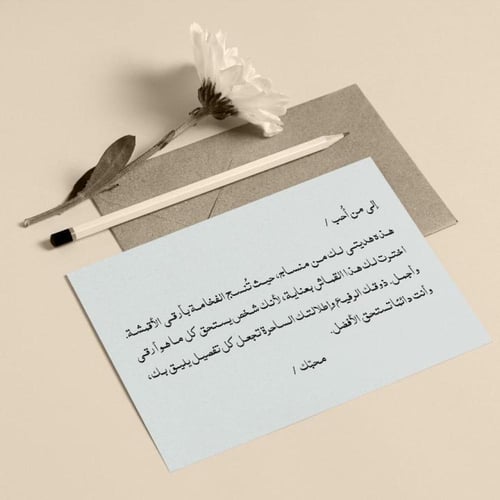 إلى من أُحب /
هذه هديتي لك من منسام، حيث تُنسج الفخامة بأرقى الأقمشة.
اخترت لك هذا القماش بعناية، لأنك شخص يستحق كل ما هو أرقى
وأجمل. ذوقك الرفيع وإطلالتك الساحرة تجعل كل تفصيل يليق بك،
وأنت دائمًا تستحق الأفضل.
محبّك /